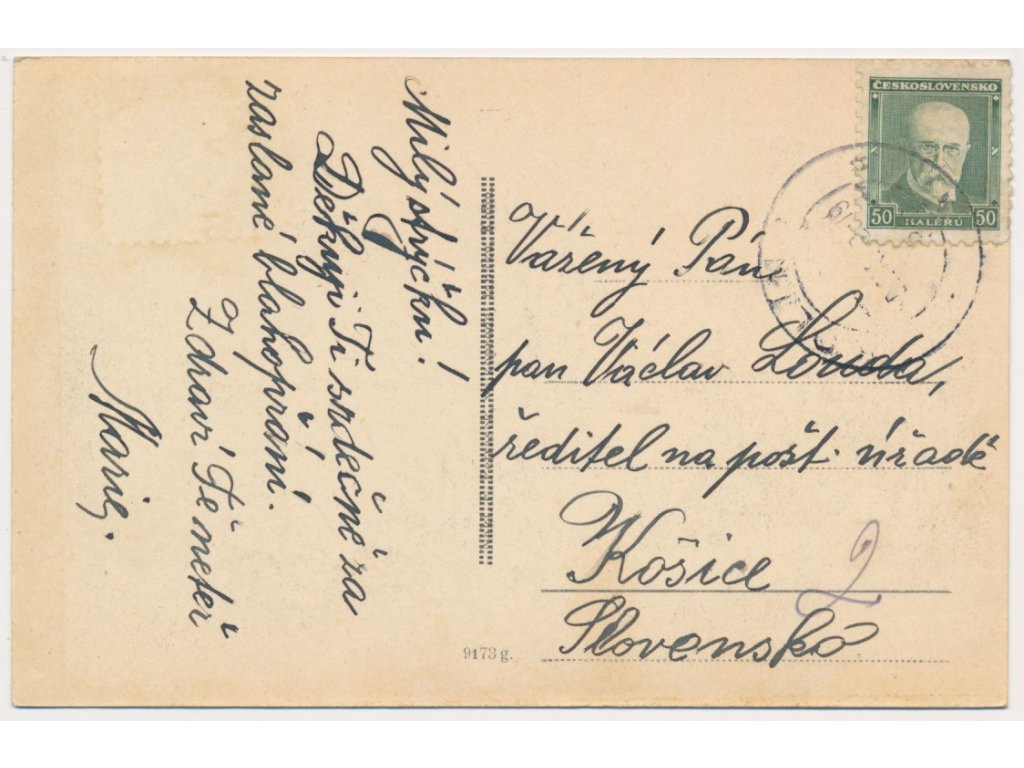 Milý strýčku!
Děkuji Ti srdečně za
zaslané blahopřání.
Zdraví Tě neteř
Marie.
ČESKOSLOVENSKO
50 HALÉŘŮ 50
Vážený Pán
pan Václav Louda,
ředitel na pošt. úřadě
Košice 2
Slovenskó
9173 g.